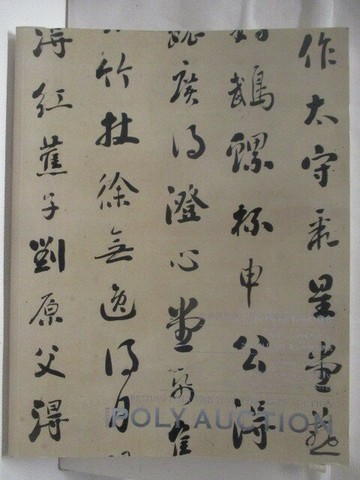 作太守聚星堂燕
鵡螺杯申公得
廣得澄心堂
竹杖徐無逸得月
得紅蕉子劉原父得
POLY AUCTION